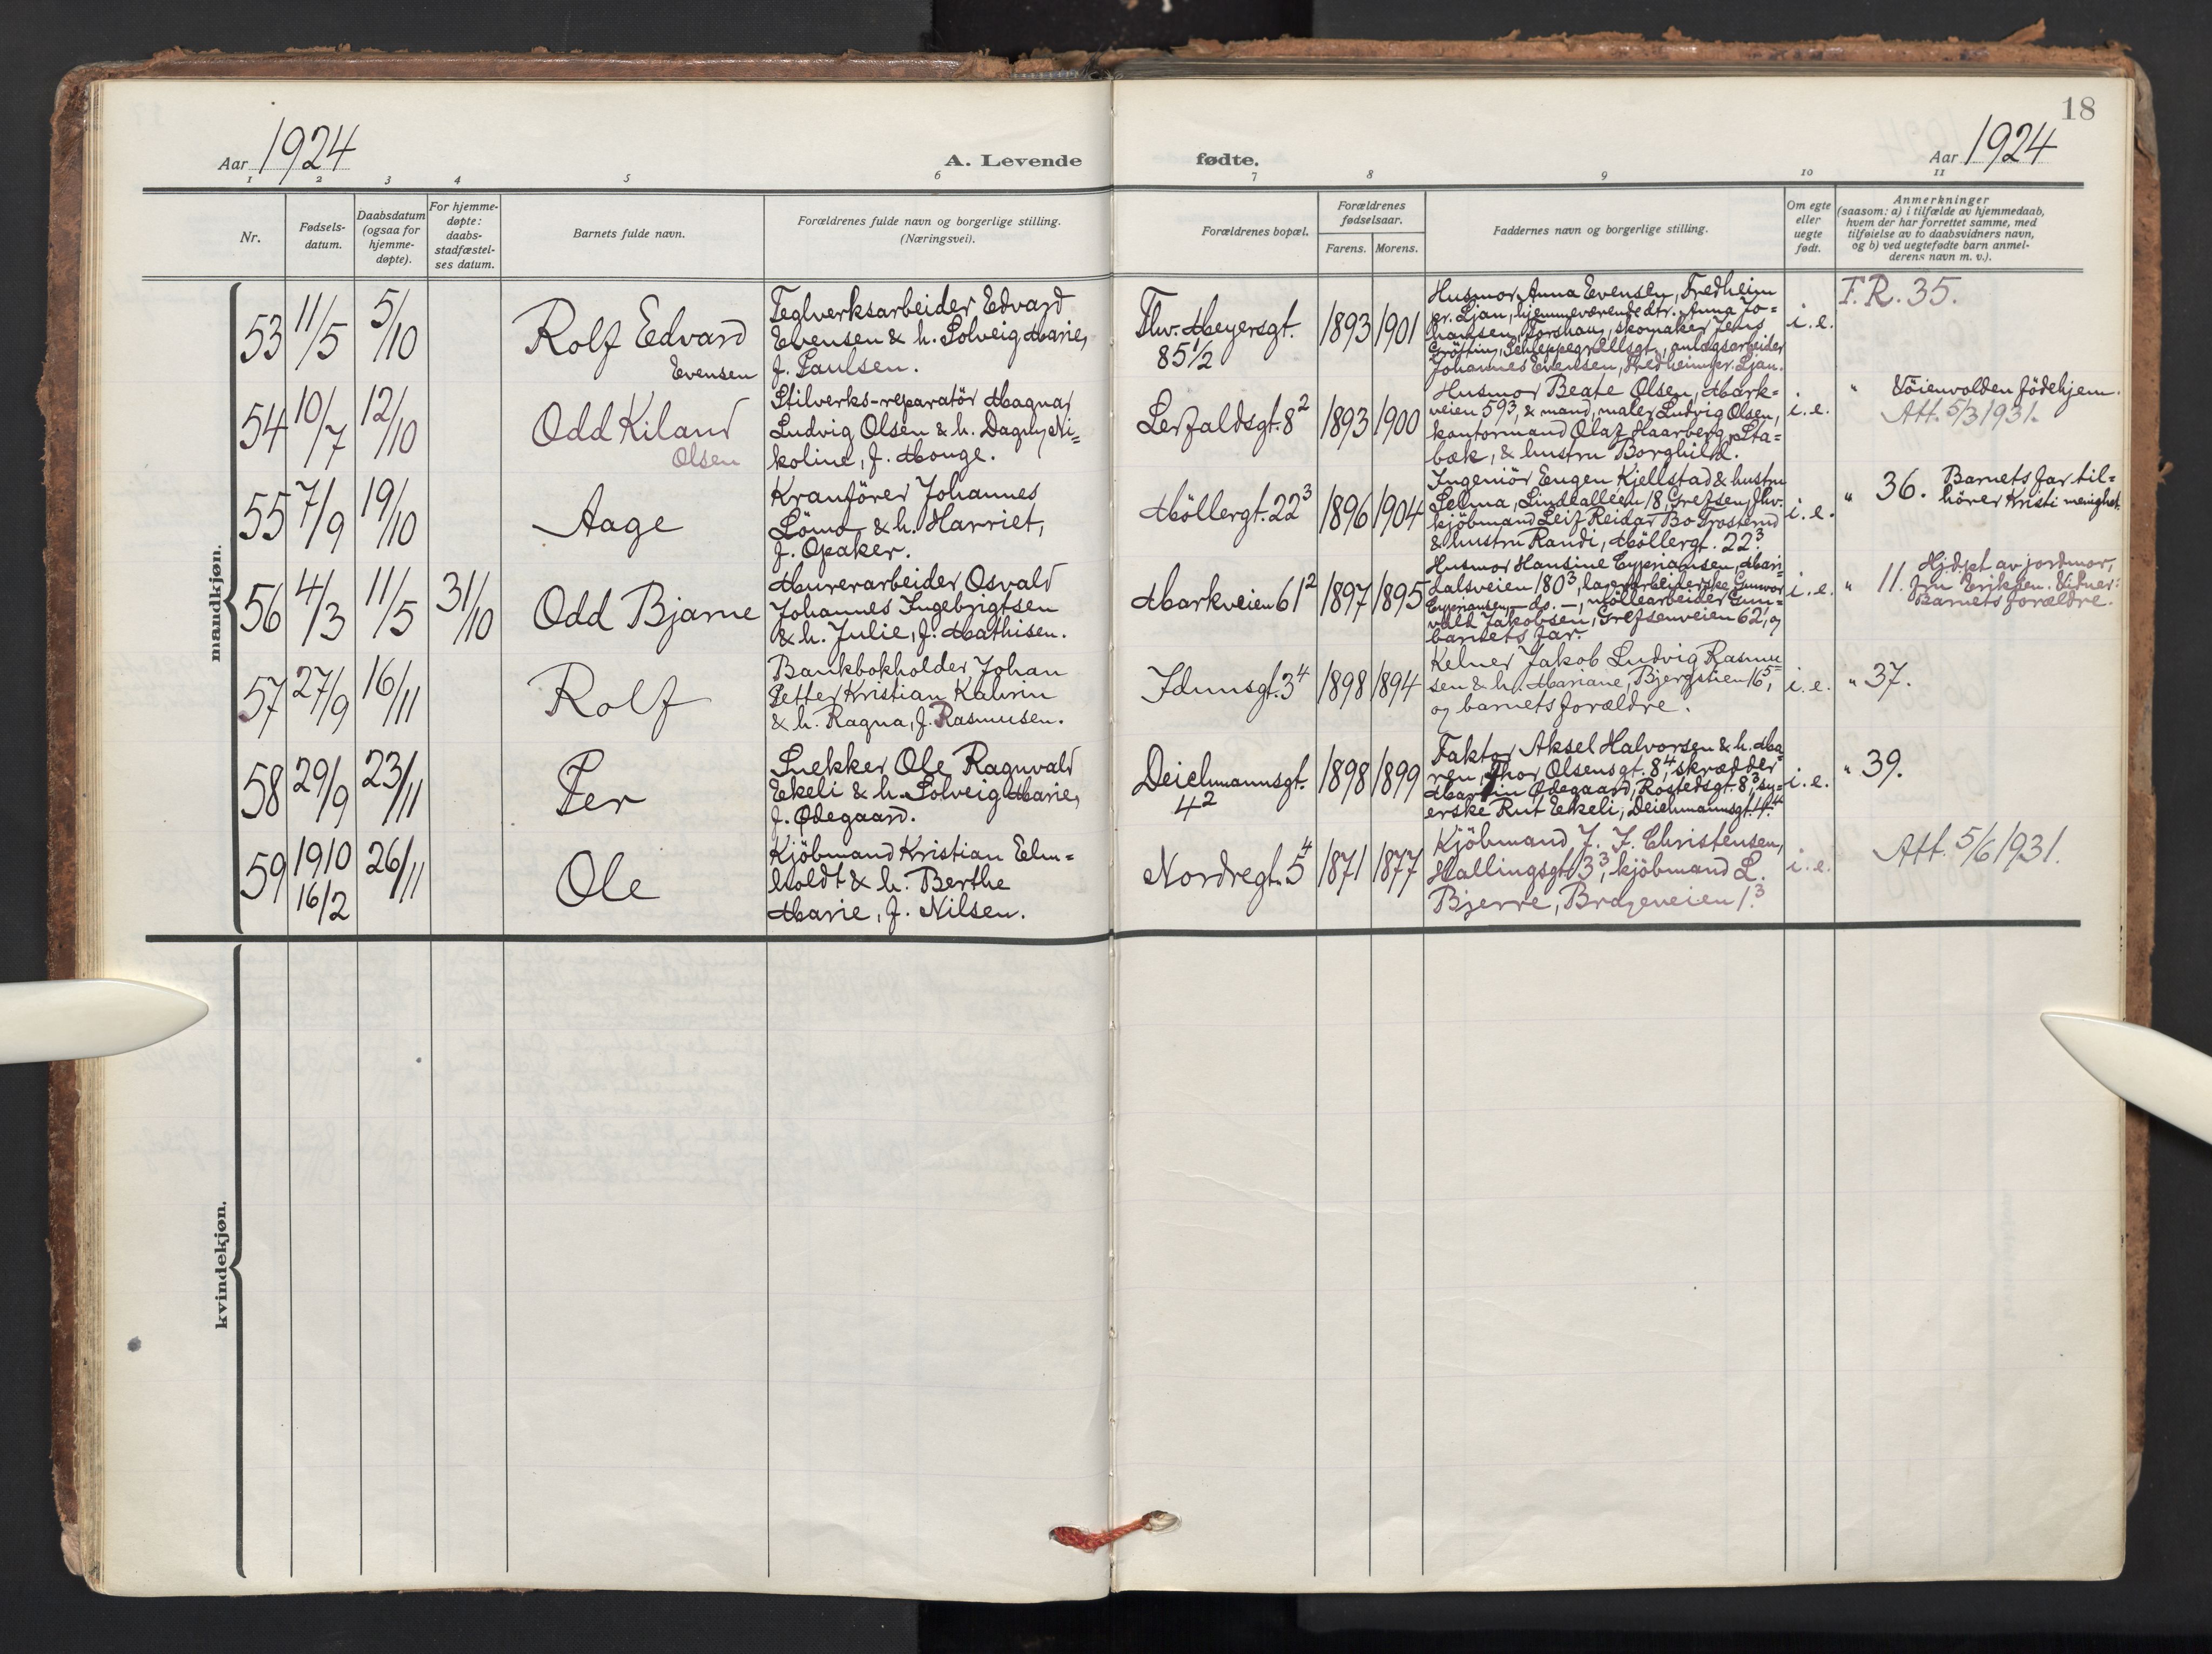 18
Aar 1924
A. Levende
fødte.
Aar 1924
1 2 3 4 5 6 7 8 9 10 11
Nr.
Fødsels-
datum.
Daabsdatum
(ogsaa for
hjemme-
døpte).
For hjemme-
døpte:
daabs-
stadfæstel-
ses datum.
Barnets fulde navn.
Forældrenes fulde navn og borgerlige stilling.
(Næringsvei).
Forældrenes bopæl.
Forældrenes
fødselsaar.
Farens. Morens.
Faddernes navn og borgerlige stilling.
Om egte
eller
uegte
født.
Anmerkninger
(saasom: a) i tilfælde av hjemmedaab,
hvem der har forrettet samme, med
tilføielse av to daabsvidners navn,
og b) ved uegtefødte barn anmel-
derens navn m. v.).
mandkjøn.
53
11/5
5/10
Rolf Edvard
Evensen
Teglverksarbeider Edvard
Evensen & h. Solveig Marie,
f. Paulsen.
Thv. Meyersgt.
85 1/2
1893
1901
Husmor Anna Evensen, Fredheim
pr. Ljan, hjemmeværende dtr. Anna Jo=
hansen, Torshaug, skomaker Jens
Gröttin, Schleppegrellsgt., anlægsarbeider
Johannes Evensen, Fredheim pr. Ljan.
i. e.
F. R. 35.
54
10/7
12/10
Odd Kiland
Olsen
Stilverks-reparatör Magnar
Ludvig Olsen & h. Dagny Ni=
koline, f. Mouge.
Lerfaldsgt. 8²
1893
1900
Husmor Beate Olsen, Mark=
veien 59³, & mand, maler Ludvig Olsen,
kontormand Olaf Haarberg, Sta=
bæk, & hustru Borghild.
i. e.
" Vöienvolden födehjem.
Att. 5/3 1931.
55
7/9
19/10
Aage
Kranförer Johannes
Lömo & h. Harriet,
f. Opaker.
Möllergt. 22³
1896
1904
Ingeniör Eugen Kjellstad & hustru
Selma, Lindealleen 18, Grefsen, fhv.
kjöbmand Leif Reidar Bo Trosterud
& hustru Randi, Möllergt. 22³.
i. e.
" 36. Barnets far til=
hörer Kristi menighet.
56
4/3
11/5
31/10
Odd Bjarne
Murerarbeider Osvald
Johannes Ingebrigtsen
& h. Julie, f. Mathisen.
Markveien 61²
1897
1895
Husmor Hansine Cyprianusen, Mari=
dalsveien 180³, lagerarbeiderske Gunvor
Cyprianusen, - do. -, möllearbeider Gun=
vald Jakobsen, Grefsenveien 62, og
barnets far.
i. e.
" 11. Hjdpt av jordmor,
fru Eriksen. Vidner:
Barnets forældre.
57
27/9
16/11
Rolf
Bankbokholder Johan
Petter Kristian Kahrin
& h. Ragna, f. Rasmusen.
Idunsgt. 3⁴
1898
1894
Kelner Jakob Ludvig Rasmu=
sen & h. Mariane, Bjergstien 16⁵,
og barnets forældre.
i. e.
" 37.
58
29/9
23/11
Per
Snekker Ole Ragnvald
Ekeli & h. Solveig Marie,
f. Ødegaard.
Deichmannsgt.
4²
1898
1899
Faktor Aksel Halvorsen & h. Ma=
ren, Thor Olsensgt. 8⁴, skrædder
Martin Ødegaard, Rostedsgt. 8³, sy=
erske Rut Ekeli, Deichmannsgt. 4⁴.
i. e.
" 39.
59
1910
16/2
26/11
Ole
Kjöbmand Kristian Elm=
holdt & h. Berthe
Marie, f. Nilsen.
Nordregt. 5⁴
1871
1877
Kjöbmand J. J. Christensen,
Hallingsgt. 3³, kjöbmand L.
Bjerre, Brageveien 1.³
i. e.
Att. 5/6 1931.
kvindekjøn.